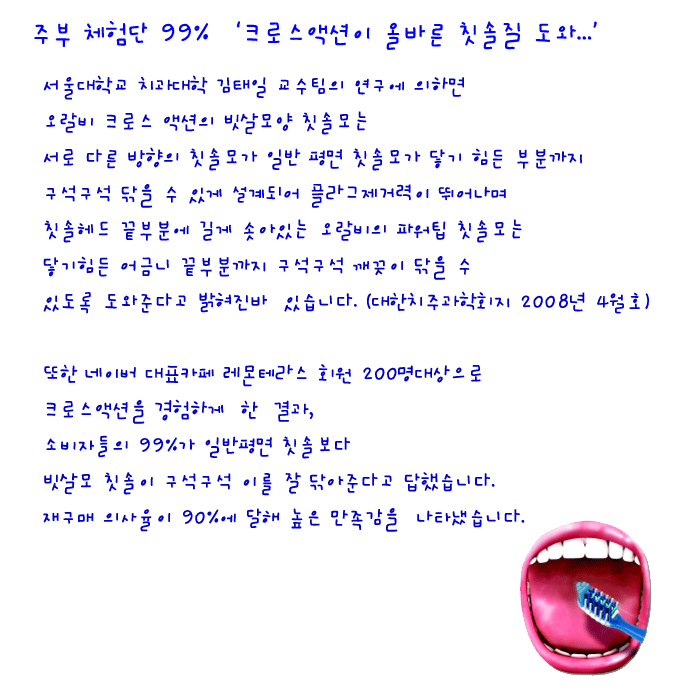 주부 체험단 99% '크로스액션이 올바른 칫솔질 도와...'
서울대학교 치과대학 김태일 교수팀의 연구에 의하면
오랄비 크로스 액션의 빗살모양 칫솔모는
서로 다른 방향의 칫솔모가 일반 평면 칫솔모가 닿기 힘든 부분까지
구석구석 닦을 수 있게 설계되어 플라그제거력이 뛰어나며
칫솔헤드 끝부분에 길게 솟아있는 오랄비의 파워팁 칫솔모는
닿기힘든 어금니 끝부분까지 구석구석 깨끗이 닦을 수
있도록 도와준다고 밝혀진바 있습니다. (대한치주과학회지 2008년 4월호)
또한 네이버 대표카페 레몬테라스 회원 200명대상으로
크로스액션을 경험하게 한 결과,
소비자들의 99%가 일반평면 칫솔보다
빗살모 칫솔이 구석구석 이를 잘 닦아준다고 답했습니다.
재구매 의사율이 90%에 달해 높은 만족감을 나타냈습니다.